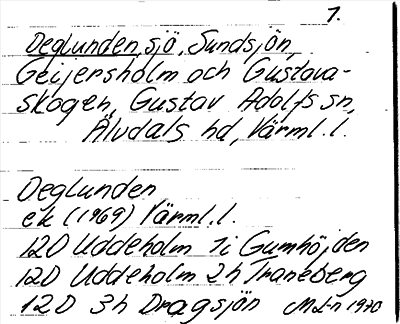 1.
Deglunden, sjö, Sundsjön,
Geijersholm och Gustava-
skogen, Gustav Adolfs sn,
Älvdals hd, Värml. l.
Deglunden
ek (1969) Värml. l.
12D Uddeholm 1i Gumhöjden
12D Uddeholm 2h Traneberg
12D 3h Dragsjön MLn 1970